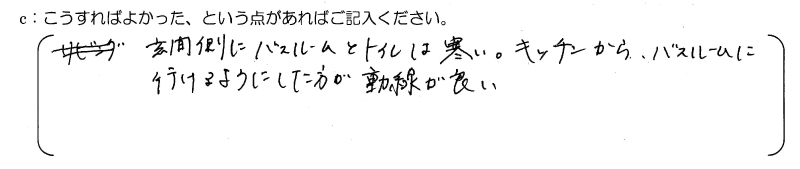 c：こうすればよかった、という点があればご記入ください。
リビング 玄関側にバスルームとトイレは寒い。キッチンから、バスルームに
行けるようにした方が動線が良い